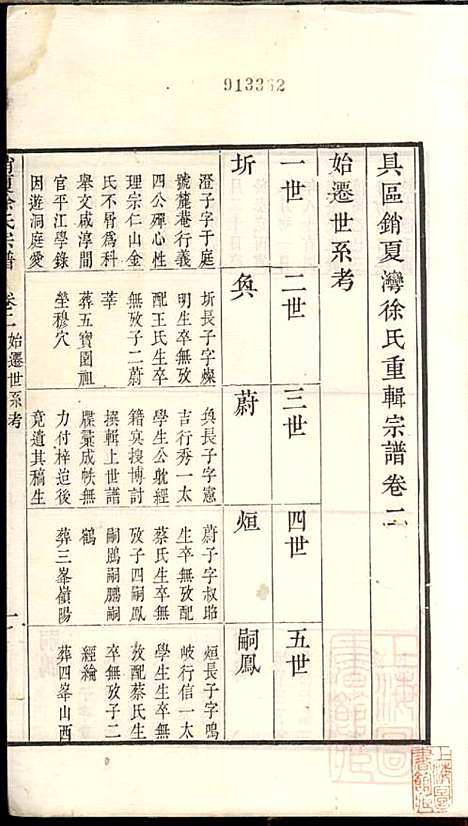 913362
具區銷夏灣徐氏重輯宗譜卷二
始遷世系考
一世
二世
三世
四世
五世
圻
奐
蔚
烜
嗣鳳
澄子字于庭
號麓菴行義
四公殫心性
理宗仁山金
氏不屑爲科
舉文咸淳間
官平江學錄
因遊洞庭愛
圻長子字燦
明生卒無攷
配王氏生卒
無攷子二蔚
莘
葬五寶園祖
塋穆穴
奐長子字憲
吉行秀一太
學生公躭經
籍㝠搜博討
撰輯上世譜
牒彚成帙無
力付梓迨後
竟遺其稿生
蔚子字叔昭
生卒無攷配
蔡氏生卒無
攷子四嗣鳳
嗣鵬嗣鸘嗣
鶴
葬三峯嶺陽
烜長子字鳴
岐行信一太
學生生卒無
攷配蔡氏生
卒無攷子二
經綸
葬四峯山西
銷夏徐氏宗譜
卷二
始遷世系考
一
上海圖書館藏